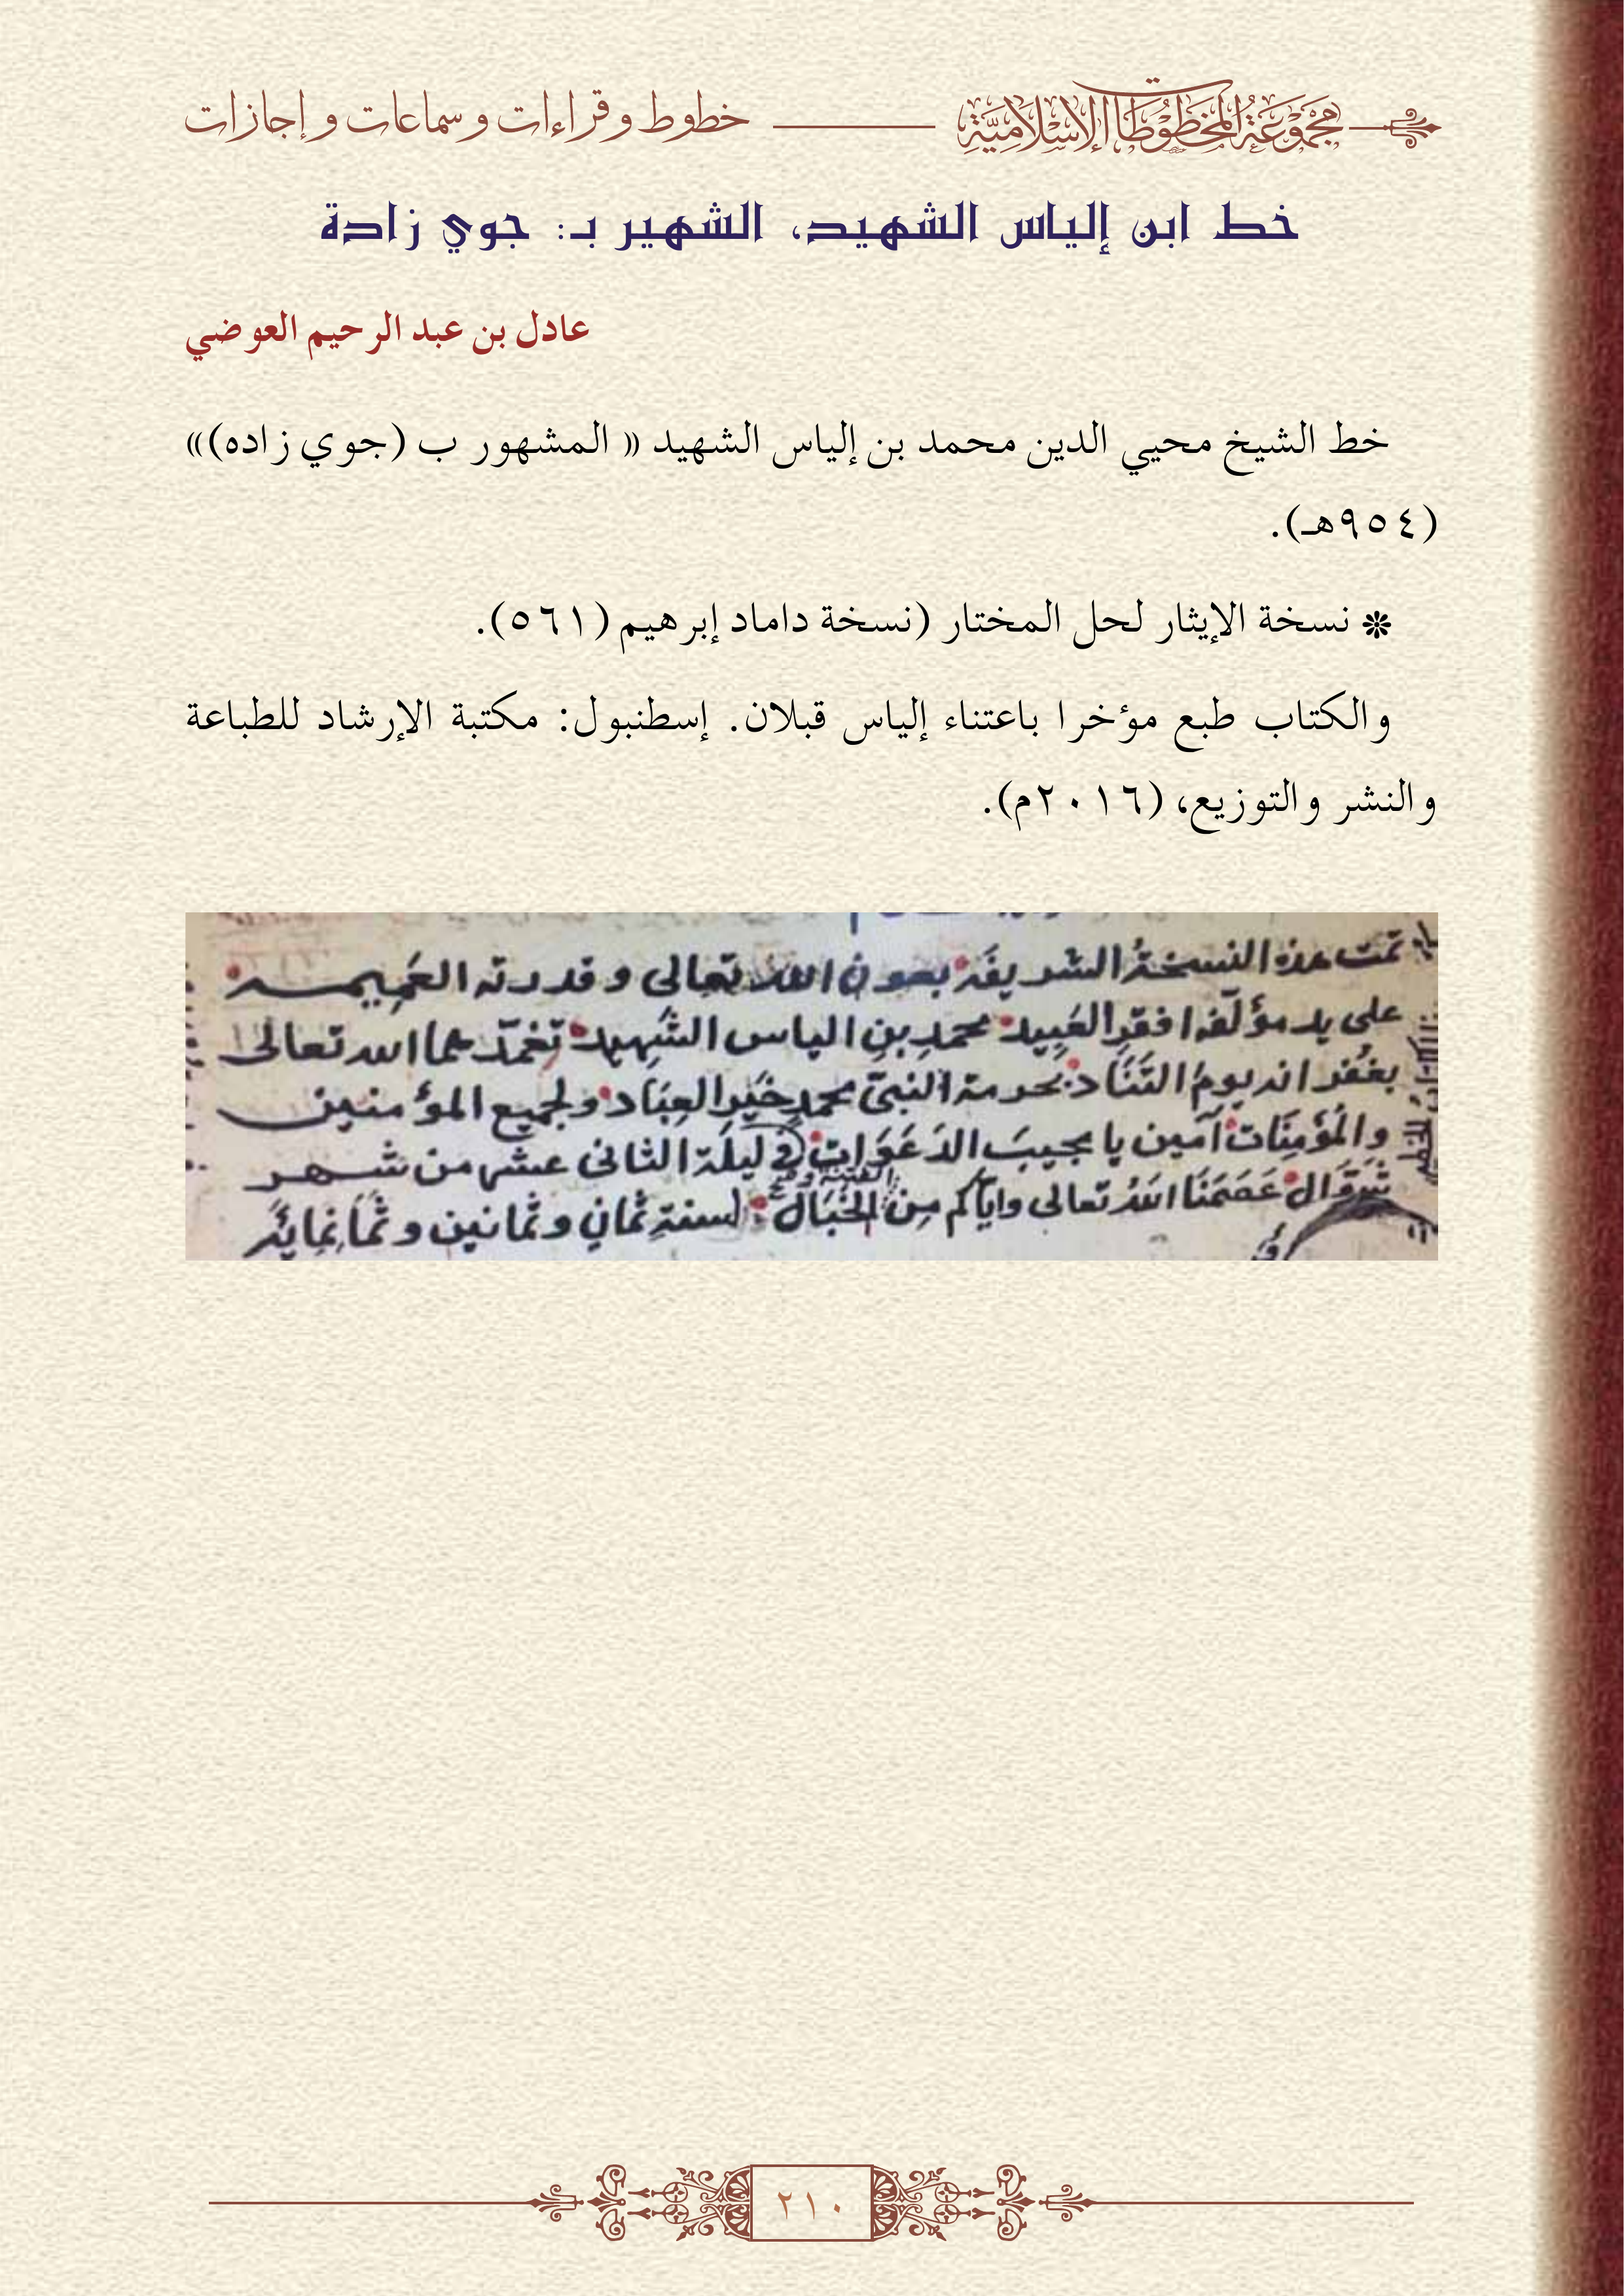 مجموعة المخطوطات الإسلامية خطوط وقراءات وسماعات وإجازات
خط ابن إلياس الشهيد، الشهير بـ: جوي زادة
عادل بن عبد الرحيم العوضي
خط الشيخ محيي الدين محمد بن إلياس الشهيد « المشهور ب (جوي زاده)»
(٩٥٤هـ).
❊ نسخة الإيثار لحل المختار (نسخة داماد إبرهيم (٥٦١).
والكتاب طبع مؤخرا باعتناء إلياس قبلان. إسطنبول: مكتبة الإرشاد للطباعة
والنشر والتوزيع، (٢٠١٦م).
تمت هذه النسخةُ الشريفَة بعون الله تعالى وقدرته العَمِيمة
على يد مؤلّفه افقرِ العَبِيد محمدِ بنِ الياس الشَهِيد تغمّدهما الله تعالى
بغفرانه يومَ التَنَاد بحرمة النبىّ محمدٍ خَيرِ العِبَاد ولجميع المؤمنين
والمُؤمِنَات آمين يا مجيبَ الدَعَوَات في ليلة الثانى عشر من شهر
شَوّال عَصَمَنَا اللهُ تعالى واياكم مِن الخَبَال لسنةِ ثمانٍ وثمانين وثمانمائة
٢١٠